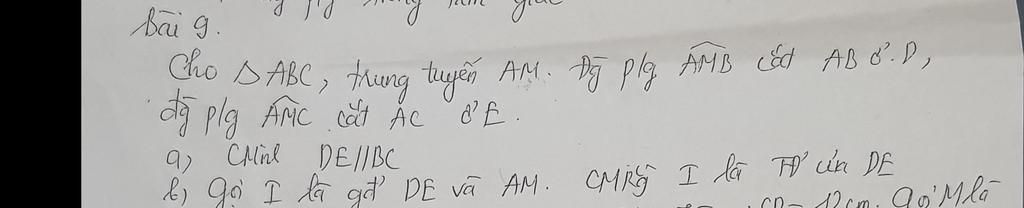 Bài 9.
Cho △ABC, trung tuyến AM. Đg p/g AMB cắt AB ở D,
đg p/g AMC cắt AC ở E.
a) CMinh DE//BC
b) gọi I là gđ DE và AM. CMRg I là TĐ của DE
CD = 12cm. Gọi M là